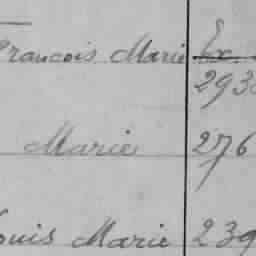 François Marie Ex.
293
Marie 276
ouis Marie 239